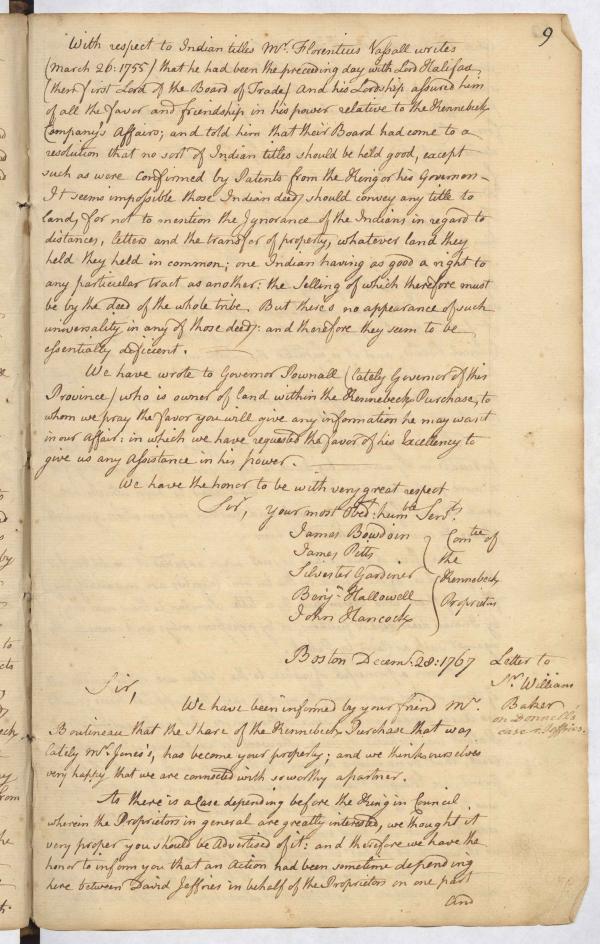 9
With respect to Indian titles Mr. Florentius Vassall writes
(March 26: 1755) that he had been the preceding day with Lord Halifax,
(then first Lord of the Board of Trade) and his Lordship assured him
of all the favor and friendship in his power relative to the Kennebeck
Company's Affairs; and told him that their Board had come to a
resolution that no sort of Indian titles should be held good, except
such as were confirmed by Patents from the King or his Governors —
It seems impossible those Indian deeds should convey any title to
land, for not to mention the Ignorance of the Indians in regard to
distances, letters and the transfer of property, whatever land they
held they held in common; one Indian having as good a right to
any particular tract as another: the selling of which therefore must
be by the deed of the whole tribe. But there's no appearance of such
universality in any of those deeds: and therefore they seem to be
essentially deficient. —
We have wrote to Governor Pownall (lately Governor of this
Province) who is owner of land within the Kennebeck Purchase, to
whom we pray the favor you will give any information he may want
in our Affair: in which we have requested the favor of his Excellency to
give us any Assistance in his power. —
We have the honor to be with very great respect
Sir, your most Obedt: humble Servts.
James Bowdoin
James Pitts
Silvester Gardiner
Benjn. Hallowell
John Hancock
Comtee of
the
Kennebeck
Proprietors
Boston Decemr. 28: 1767
Letter to
Sr. William
Baker
on Donnell's
case v. Jeffries.
Sir,
We have been informed by your friend Mr.
Boutineau that the share of the Kennebeck Purchase that was
lately Mr. Jones's, has become your property; and we think ourselves
very happy that we are connected with so worthy a partner.
As there is a Case depending before the King in Council
wherein the Proprietors in general are greatly interested, we thought it
very proper you should be advertised of it: and therefore we have the
honor to inform you that an Action had been sometime depending
here between David Jeffries in behalf of the Proprietors on one part
and